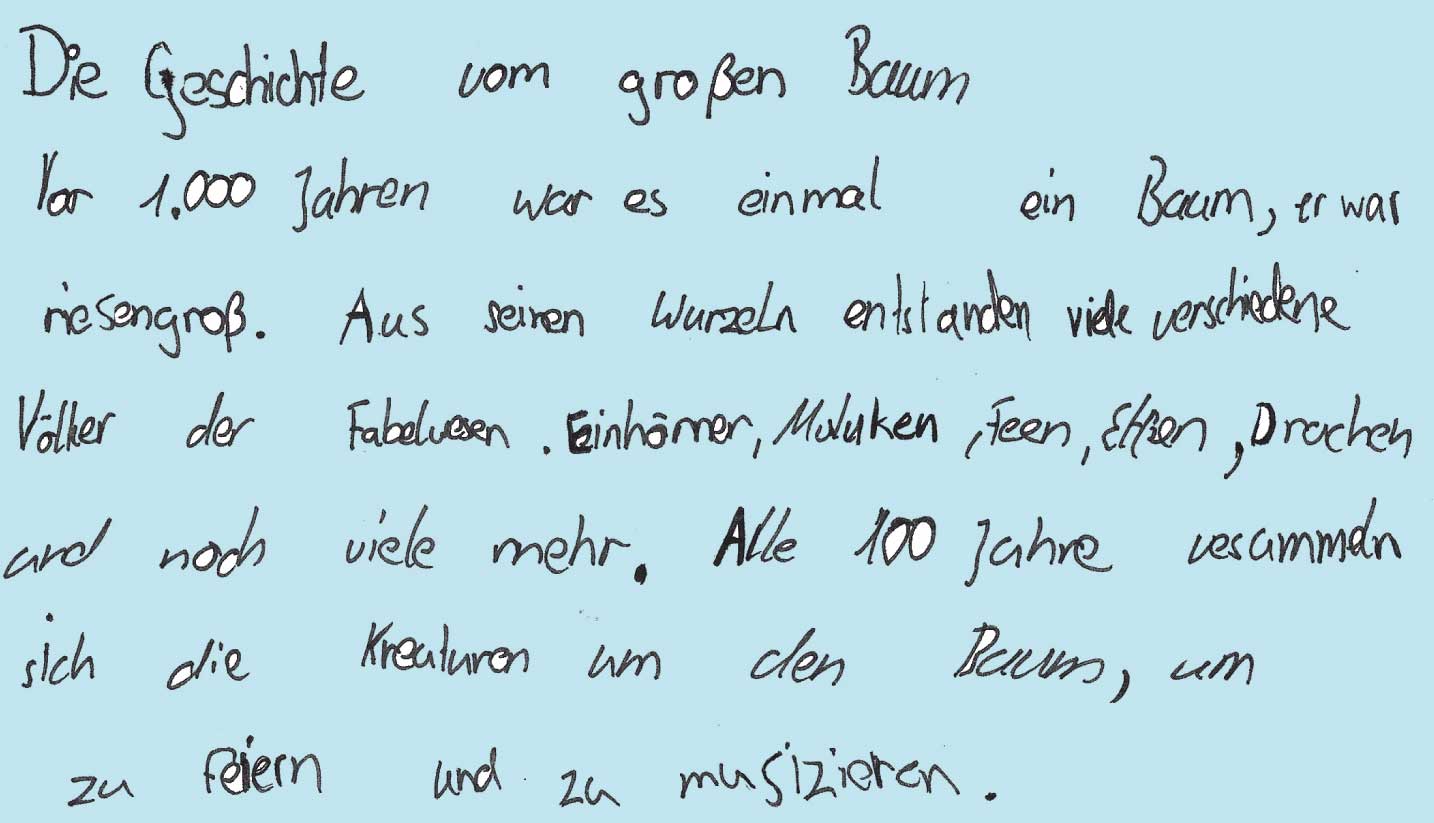 Die Geschichte vom großen Baum
Vor 1.000 Jahren war es einmal ein Baum, er war
riesengroß. Aus seinen Wurzeln entstanden viele verschiedene
Völker der Fabelwesen. Einhörner, Muluken, Feen, Elfen, Drachen
und noch viele mehr. Alle 100 Jahre vesammeln
sich die Kreaturen um den Baum, um
zu feiern und zu musizieren.